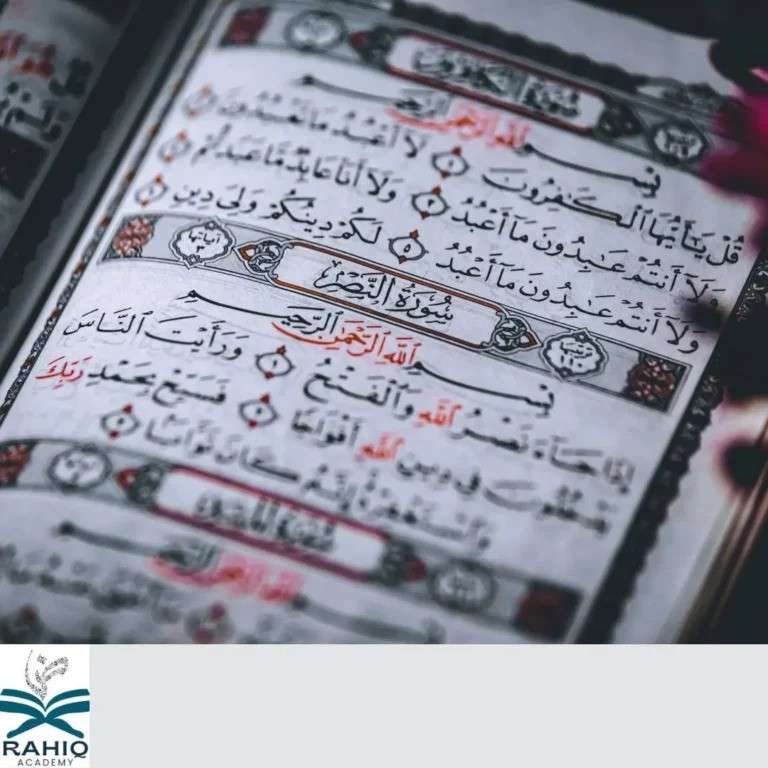 سُورَةُ الكَافِرُونَ
بِسْمِ ٱللَّهِ ٱلرَّحْمَٰنِ ٱلرَّحِيمِ
قُلْ يَٰٓأَيُّهَا ٱلْكَٰفِرُونَ ١ لَآ أَعْبُدُ مَا تَعْبُدُونَ ٢
وَلَآ أَنتُمْ عَٰبِدُونَ مَآ أَعْبُدُ ٣ وَلَآ أَنَا۠ عَابِدٌ مَّا عَبَدتُّمْ ٤
وَلَآ أَنتُمْ عَٰبِدُونَ مَآ أَعْبُدُ ٥ لَكُمْ دِينُكُمْ وَلِيَ دِينِ ٦
سُورَةُ النَّصْرِ
بِسْمِ ٱللَّهِ ٱلرَّحْمَٰنِ ٱلرَّحِيمِ
إِذَا جَآءَ نَصْرُ ٱللَّهِ وَٱلْفَتْحُ ١ وَرَأَيْتَ ٱلنَّاسَ
يَدْخُلُونَ فِي دِينِ ٱللَّهِ أَفْوَاجًا ٢ فَسَبِّحْ بِحَمْدِ رَبِّكَ
وَٱسْتَغْفِرْهُ إِنَّهُۥ كَانَ تَوَّابًۢا ٣
بِسْمِ ٱللَّهِ ٱلرَّحْمَٰنِ ٱلرَّحِيمِ
RAHIQ
ACADEMY